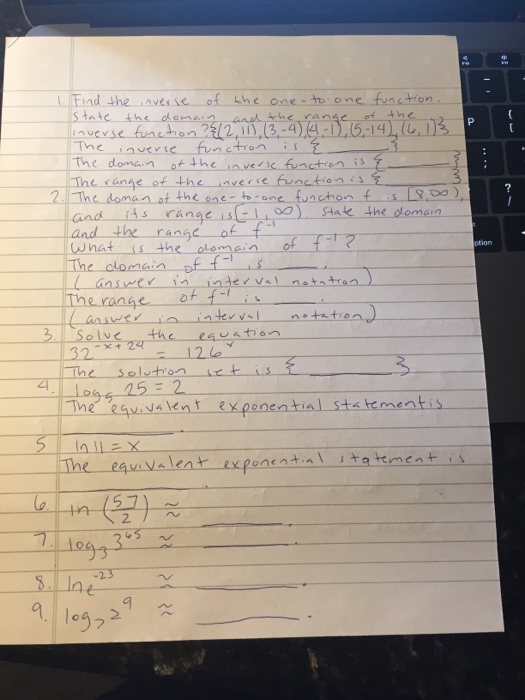 1. Find the inverse of the one-to-one function.
State the domain and the range of the
inverse function ? {(2,11),(3,-4),(4,-1),(5,-14),(6,1)}
The inverse function is { ______ }
The domain of the inverse function is { ______ }
The range of the inverse function is { ______ }
2. The domain of the one-to-one function f is [8,∞),
and its range is [-1,∞) State the domain
and the range of f⁻¹
What is the domain of f⁻¹?
The domain of f⁻¹ is ____.
(answer in interval notation)
The range of f⁻¹ is ____.
(answer in interval notation)
3. Solve the equation
32^(-x+24) = 126^x
The solution set is { ______ }
4. log₅ 25 = 2
The equivalent exponential statement is
______.
5 ln 11 = x
The equivalent exponential statement is
______.
6. ln (57/2) ≈ ______.
7. log₃ 3^65 ≈ ______.
8. ln e^-23 ≈ ______.
9. log₂ 2^9 ≈ ______.
P
{
[
:
;
?
/
ption